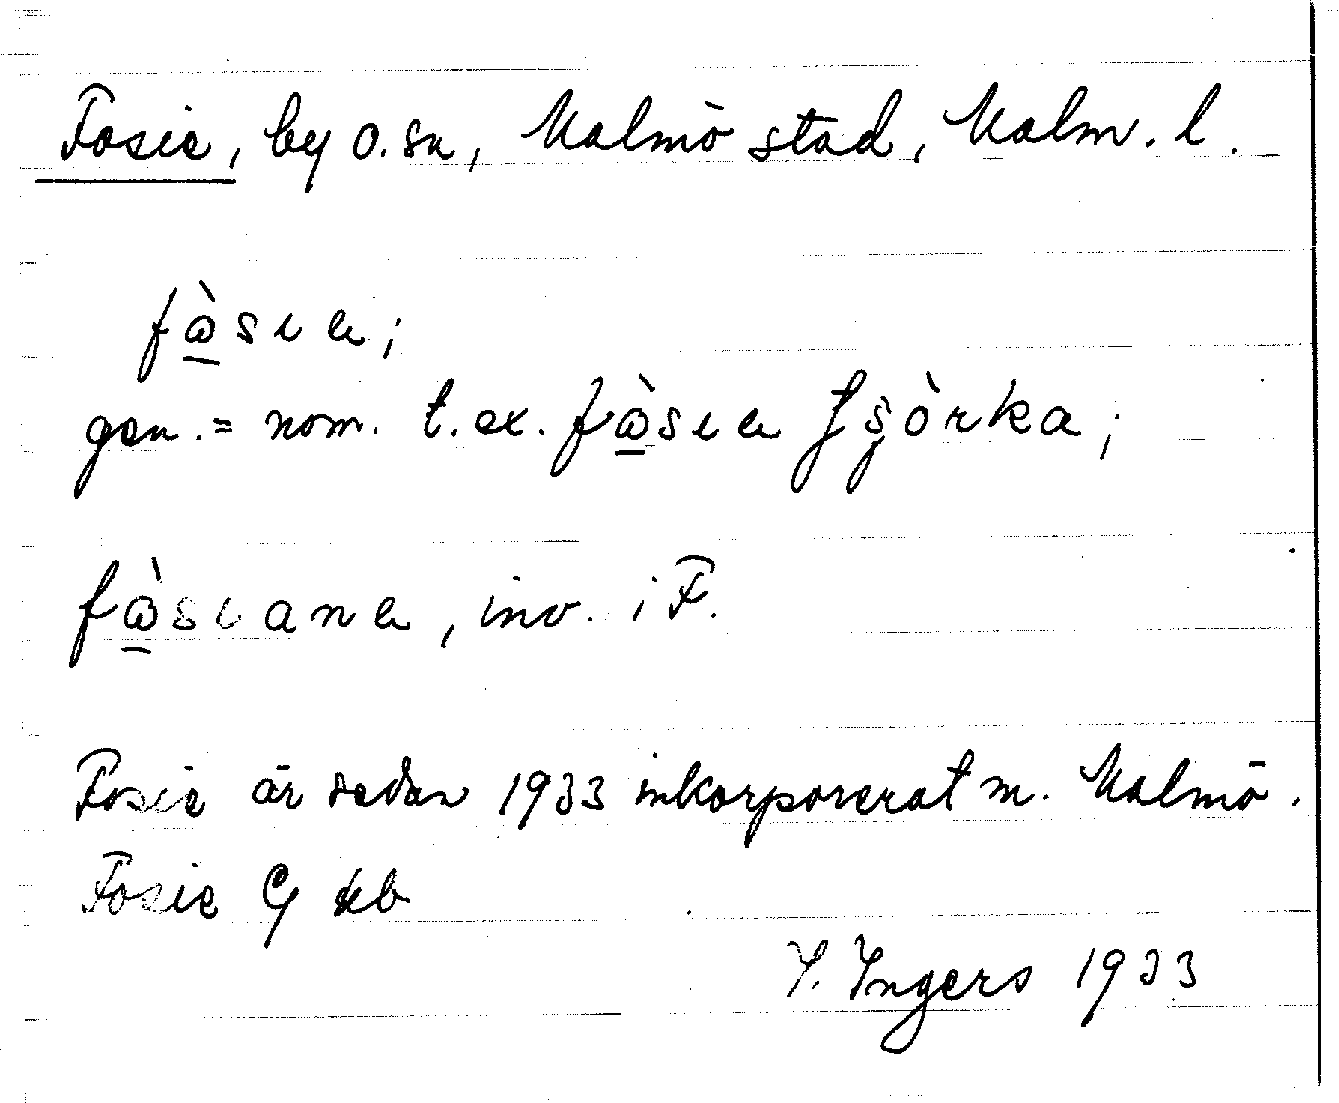 Fosie, by o. sn, Malmö stad, Malm. l.
fὼ̲sıɐ;
gen. = nom. t.ex. fὼ̲sıɐ ʈʂòrka;
fὼ̲sıanɐ, inv. i F.
Fosie är sedan 1933 inkorporerat m. Malmö.
Fosie G kb
I. Ingers 1933